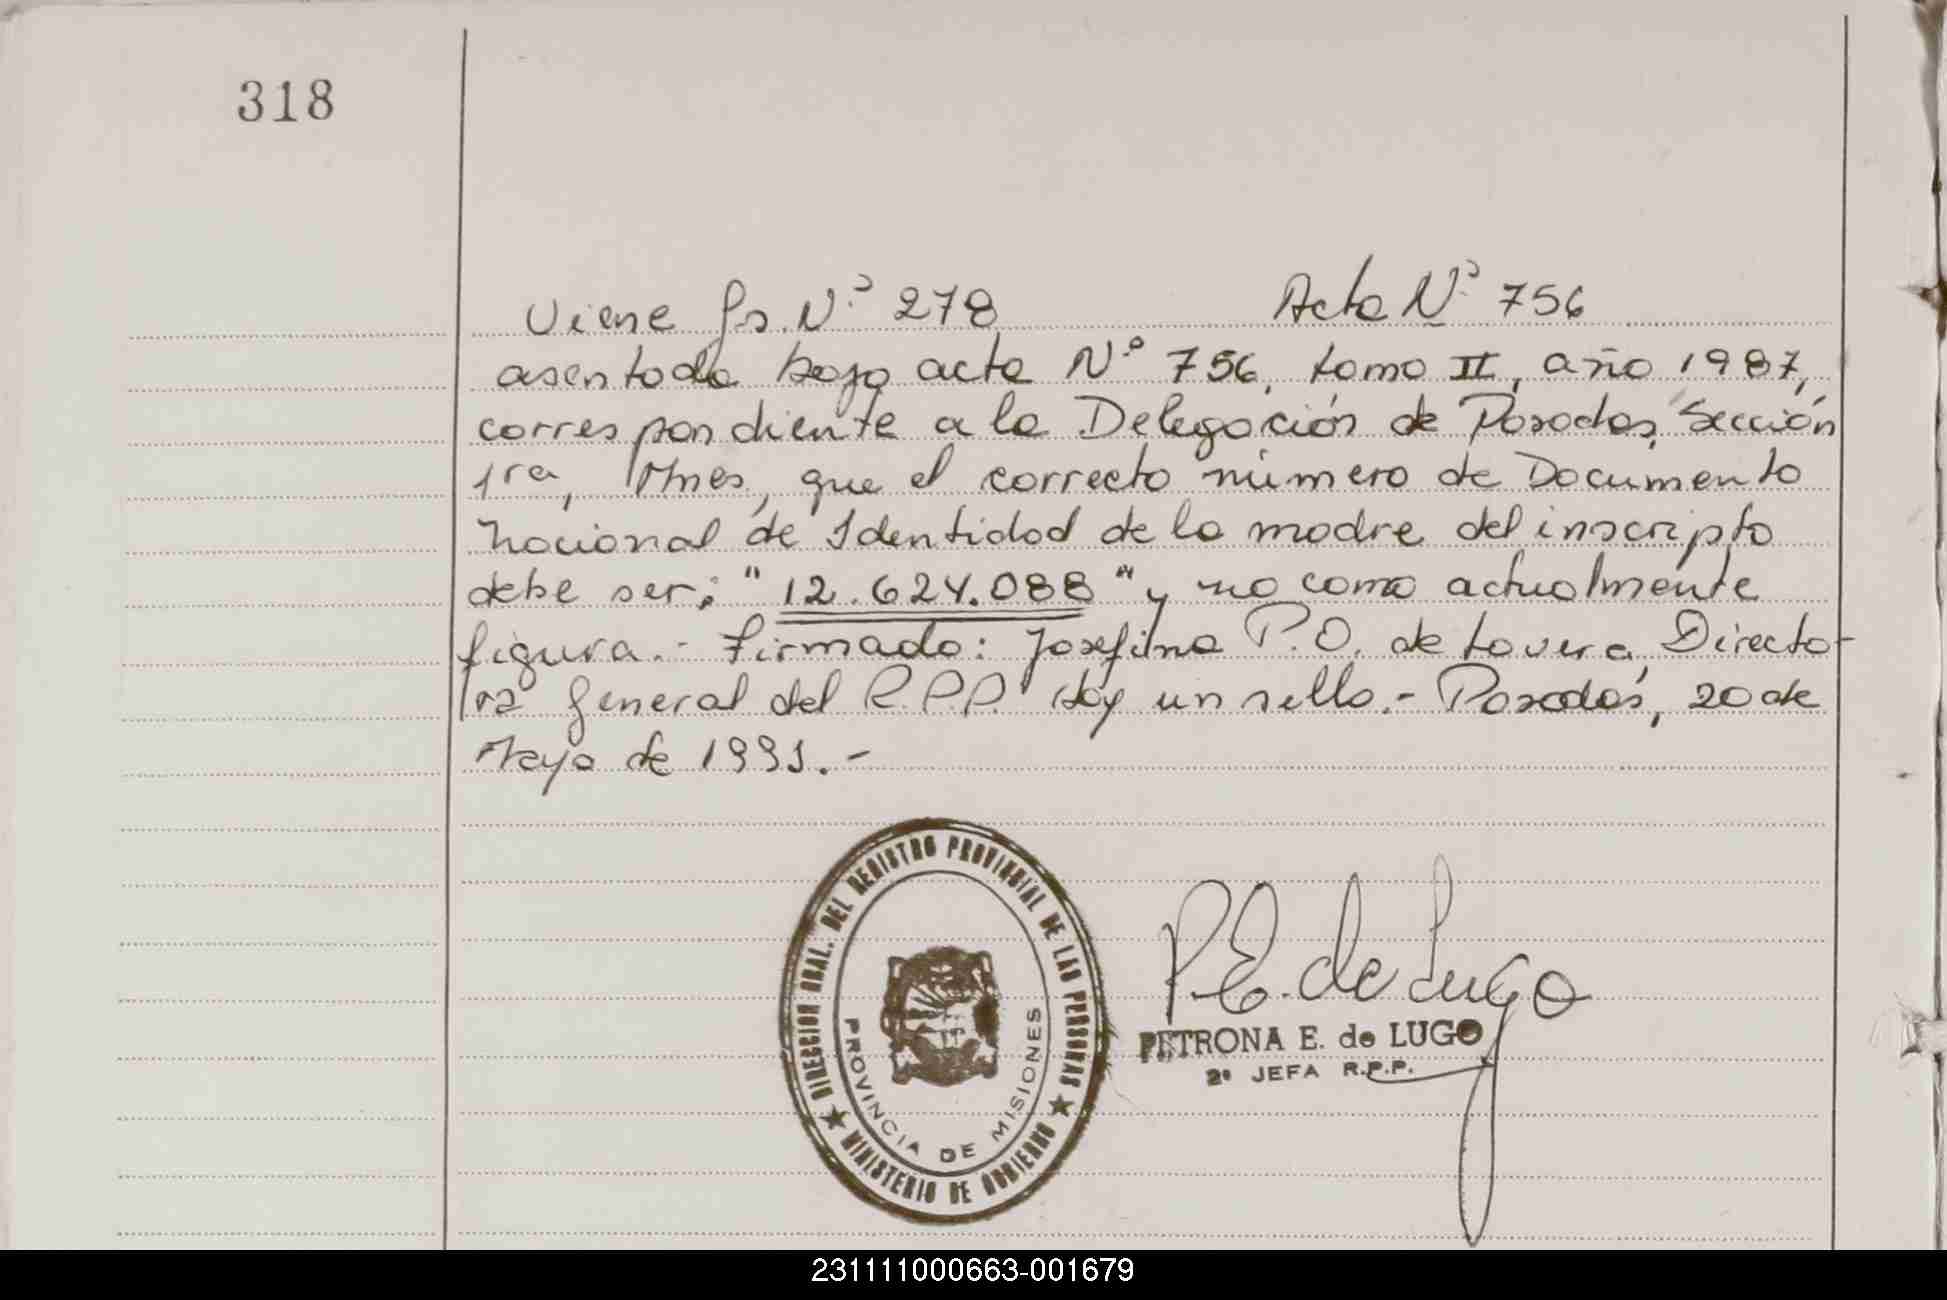 318
Viene fs. Nº 278 Acta Nº 756
asentada bajo acta Nº 756, tomo II, año 1987,
correspondiente a la Delegación de Posadas, Sección
1ra, Mnes, que el correcto número de Documento
Nacional de Identidad de la madre del inscripto
debe ser: "12.624.088" y no como actualmente
figura.- Firmado: Josefina P.O. de Lovera, Directo-
ra General del R.P.P. Hay un sello.- Posadas, 20 de
Mayo de 1991.-
DIRECCION GRAL. DEL REGISTRO PROVINCIAL DE LAS PERSONAS
MINISTERIO DE GOBIERNO
PROVINCIA DE MISIONES
P.E. de Lugo
PETRONA E. de LUGO
2º JEFA R.P.P.
231111000663-001679